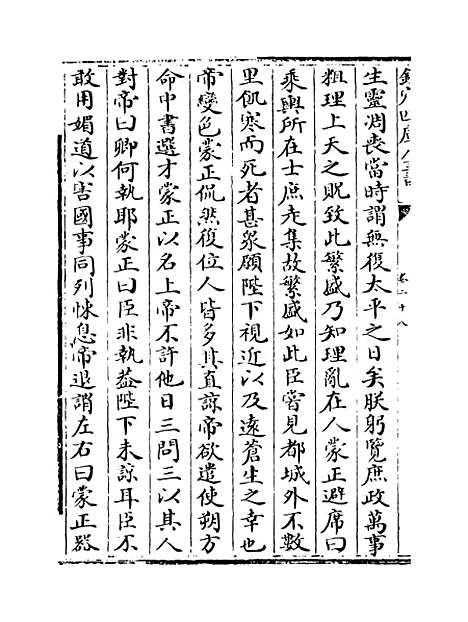 欽定四庫全書
卷二十八
生靈凋喪當時謂無復太平之日矣朕躬覽庶政萬事
粗理上天之貺致此繁盛乃知理亂在人蒙正避席曰
乘輿所在士庶走集故繁盛如此臣嘗見都城外不數
里飢寒而死者甚衆願陛下視近以及遠蒼生之幸也
帝變色蒙正侃然復位人皆多其直諒帝欲遣使朔方
命中書選才蒙正以名上帝不許他日三問三以其人
對帝曰卿何執耶蒙正曰臣非執葢陛下未諒耳臣不
敢用媚道以害國事同列悚息帝退謂左右曰蒙正器